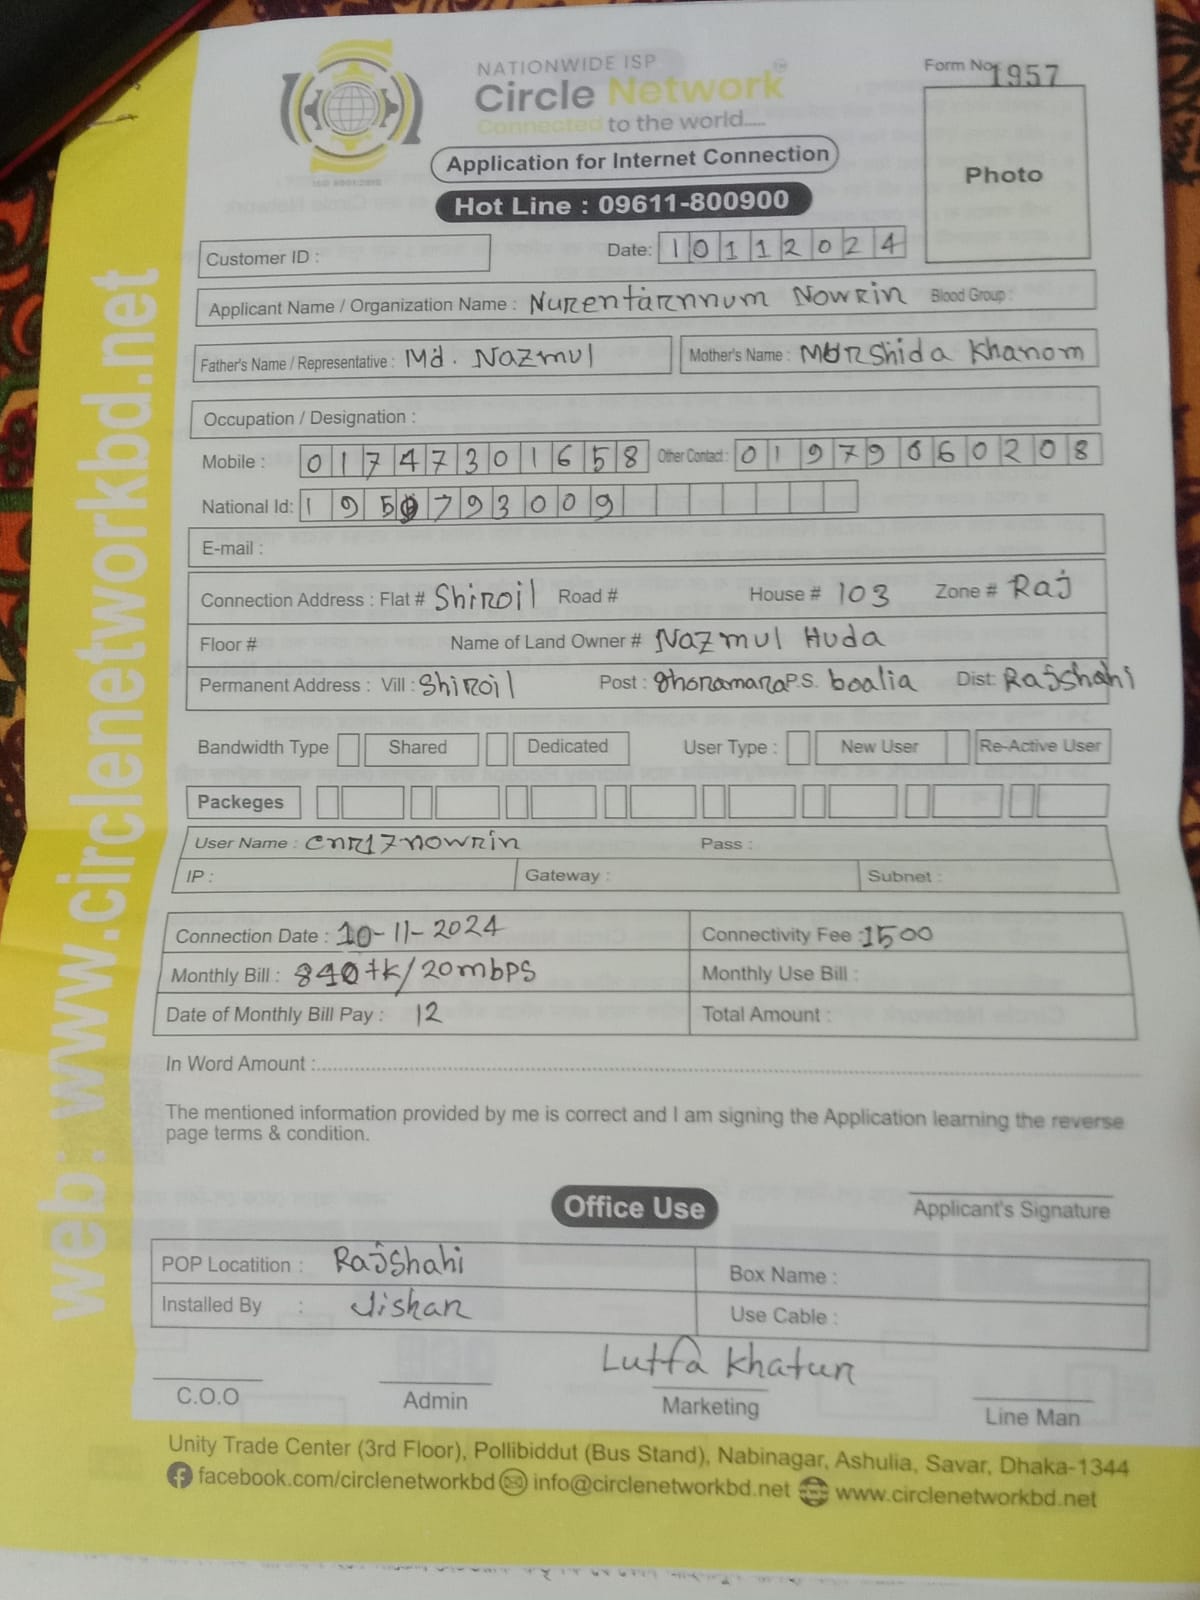 NATIONWIDE ISP
Circle Network
Connected to the world.....
Form No. 1957
Application for Internet Connection
Photo
Hot Line : 09611-800900
ISO 9001:2015
Customer ID :
Date: 10112024
Applicant Name / Organization Name : Nurentarnnum Nowrin Blood Group :
Father's Name / Representative : Md. Nazmul Mother's Name : Murshida Khanom
Occupation / Designation :
Mobile : 01747301658 Other Contact : 01979660208
National Id: 1950793009
E-mail :
Connection Address : Flat # Shiroil Road # House # 103 Zone # Raj
Floor # Name of Land Owner # Nazmul Huda
Permanent Address : Vill : Shiroil Post : Ghoramara P.S. boalia Dist: Rajshahi
Bandwidth Type Shared Dedicated User Type : New User Re-Active User
Packeges
User Name : cnr17nowrin Pass :
IP : Gateway : Subnet :
Connection Date : 10-11-2024 Connectivity Fee : 1500
Monthly Bill : 840tk/20mbps Monthly Use Bill :
Date of Monthly Bill Pay : 12 Total Amount :
In Word Amount :
The mentioned information provided by me is correct and I am signing the Application learning the reverse
page terms & condition.
Office Use
Applicant's Signature
POP Locatition : Rajshahi Box Name :
Installed By : Jishan Use Cable :
Lutfa Khatun
C.O.O Admin Marketing Line Man
Unity Trade Center (3rd Floor), Pollibiddut (Bus Stand), Nabinagar, Ashulia, Savar, Dhaka-1344
facebook.com/circlenetworkbd info@circlenetworkbd.net www.circlenetworkbd.net
web: www.circlenetworkbd.net